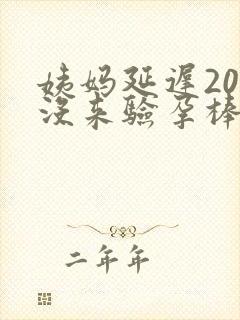 姨妈延迟20
没来验孕棒
二年年